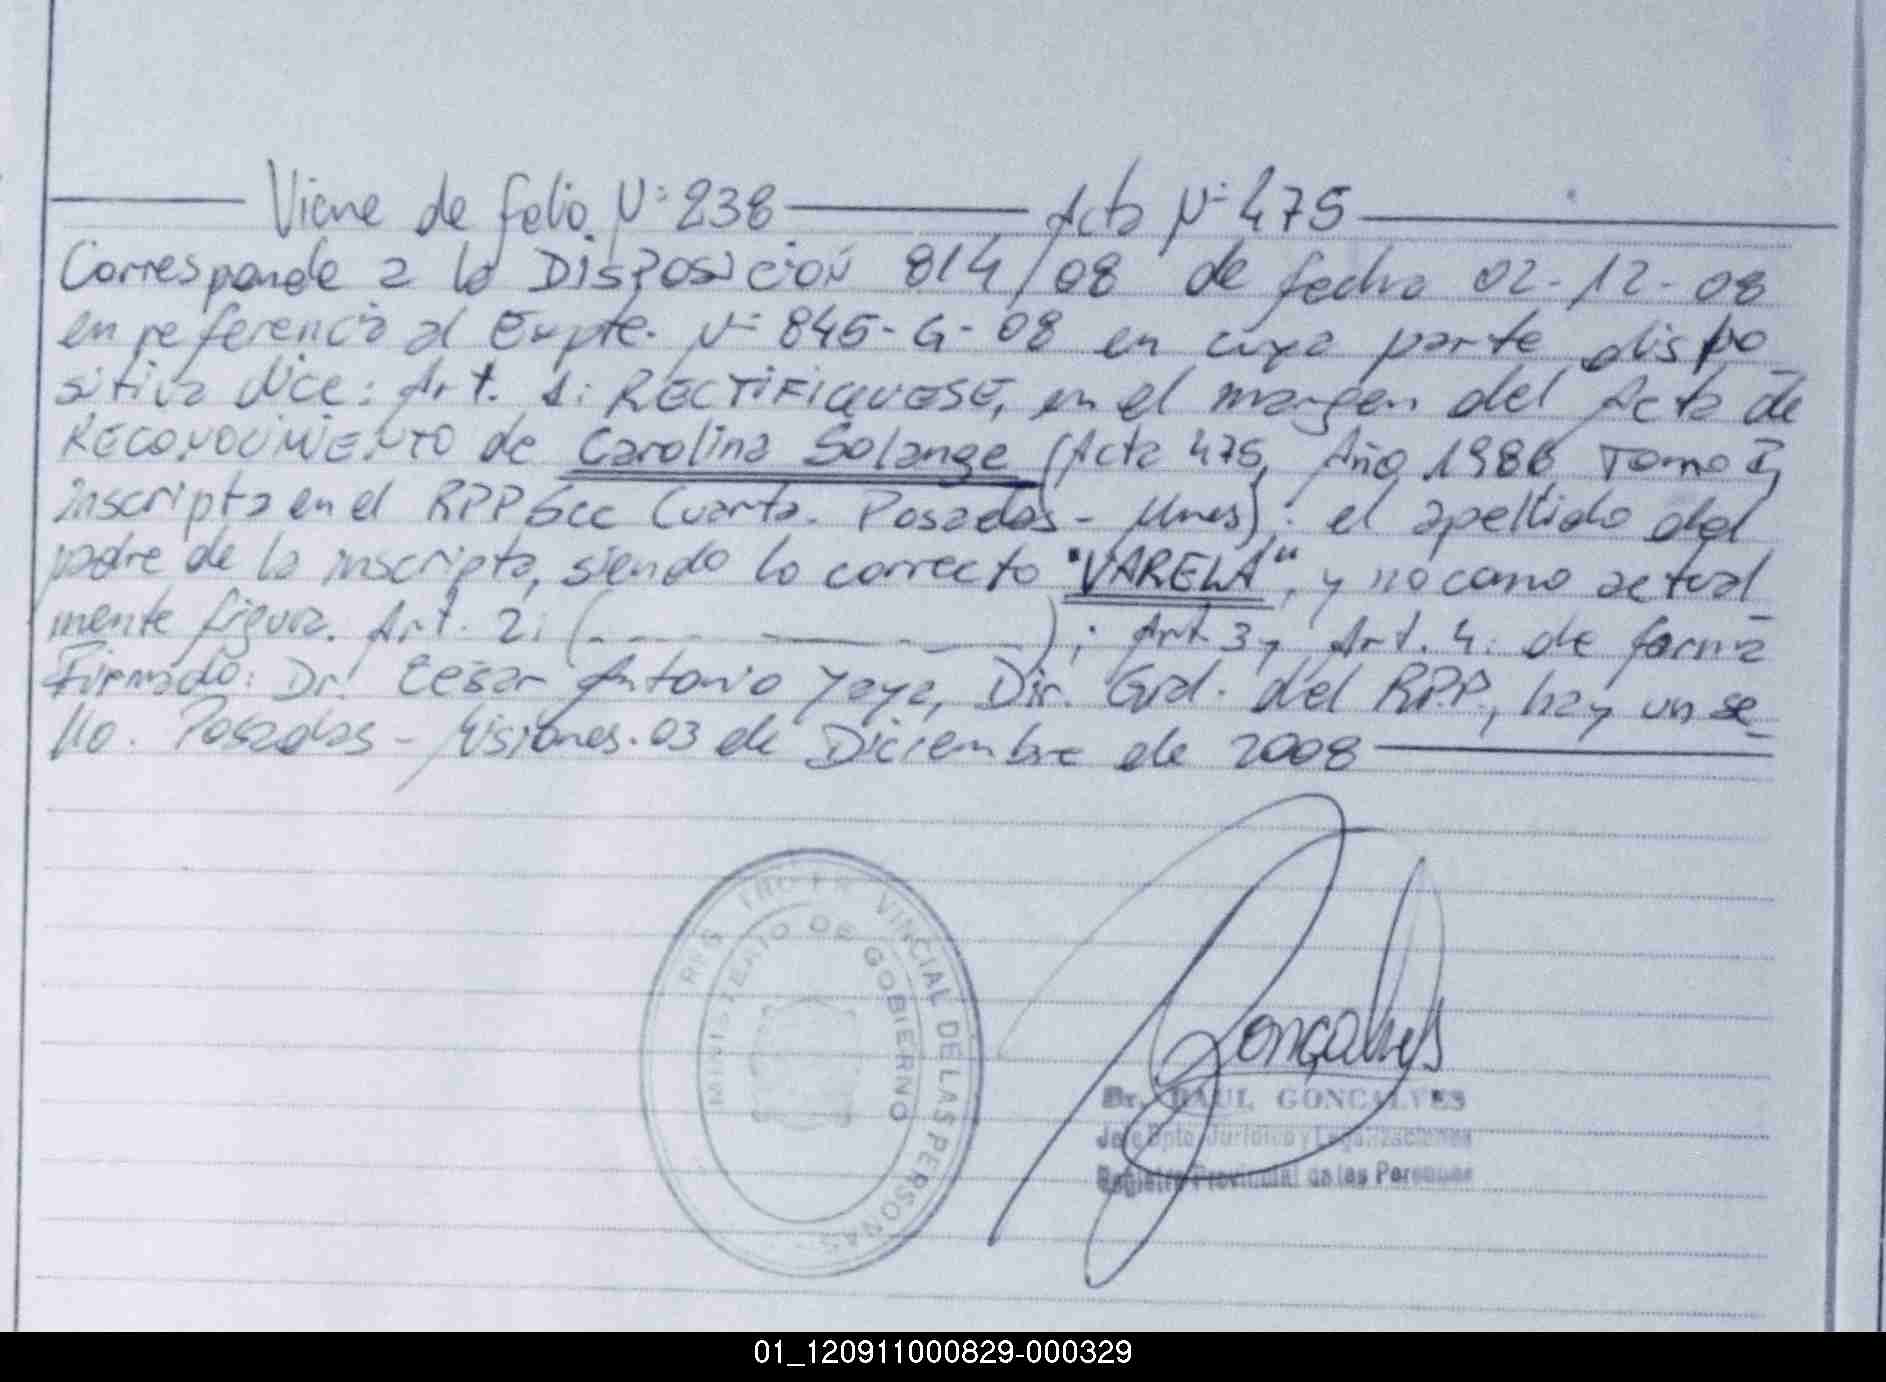 Viene de folio N° 238 Acta N° 475
Corresponde a la DISPOSICIÓN 814/08 de fecha 02-12-08
en referencia al Expte. N° 845-G-08 en cuya parte dispo
sitiva dice: Art. 1: RECTIFIQUESE, en el margen del Acta de
RECONOCIMIENTO de Carolina Solange (Acta 475, Año 1986, Tomo I,
inscripta en el RPP Scc Cuarta. Posadas - Mnes): el apellido del
padre de la inscripta, siendo lo correcto "VARELA", y no como actual
mente figura. Art. 2: (- - - - -); Art 3 y Art. 4: de forma
Firmado: Dr. César Antonio Yaya, Dir. Gral. del R.P.P., hay un se_
llo. Posadas - Misiones. 03 de Diciembre de 2008
VINCIAL DE LAS PERSONAS
MINISTERIO DE GOBIERNO
Gonçalves
Dr. RAUL GONCALVES
Jefe Dpto. Jurídico y Legalizaciones
Registro Provincial de las Personas
01_120911000829-000329